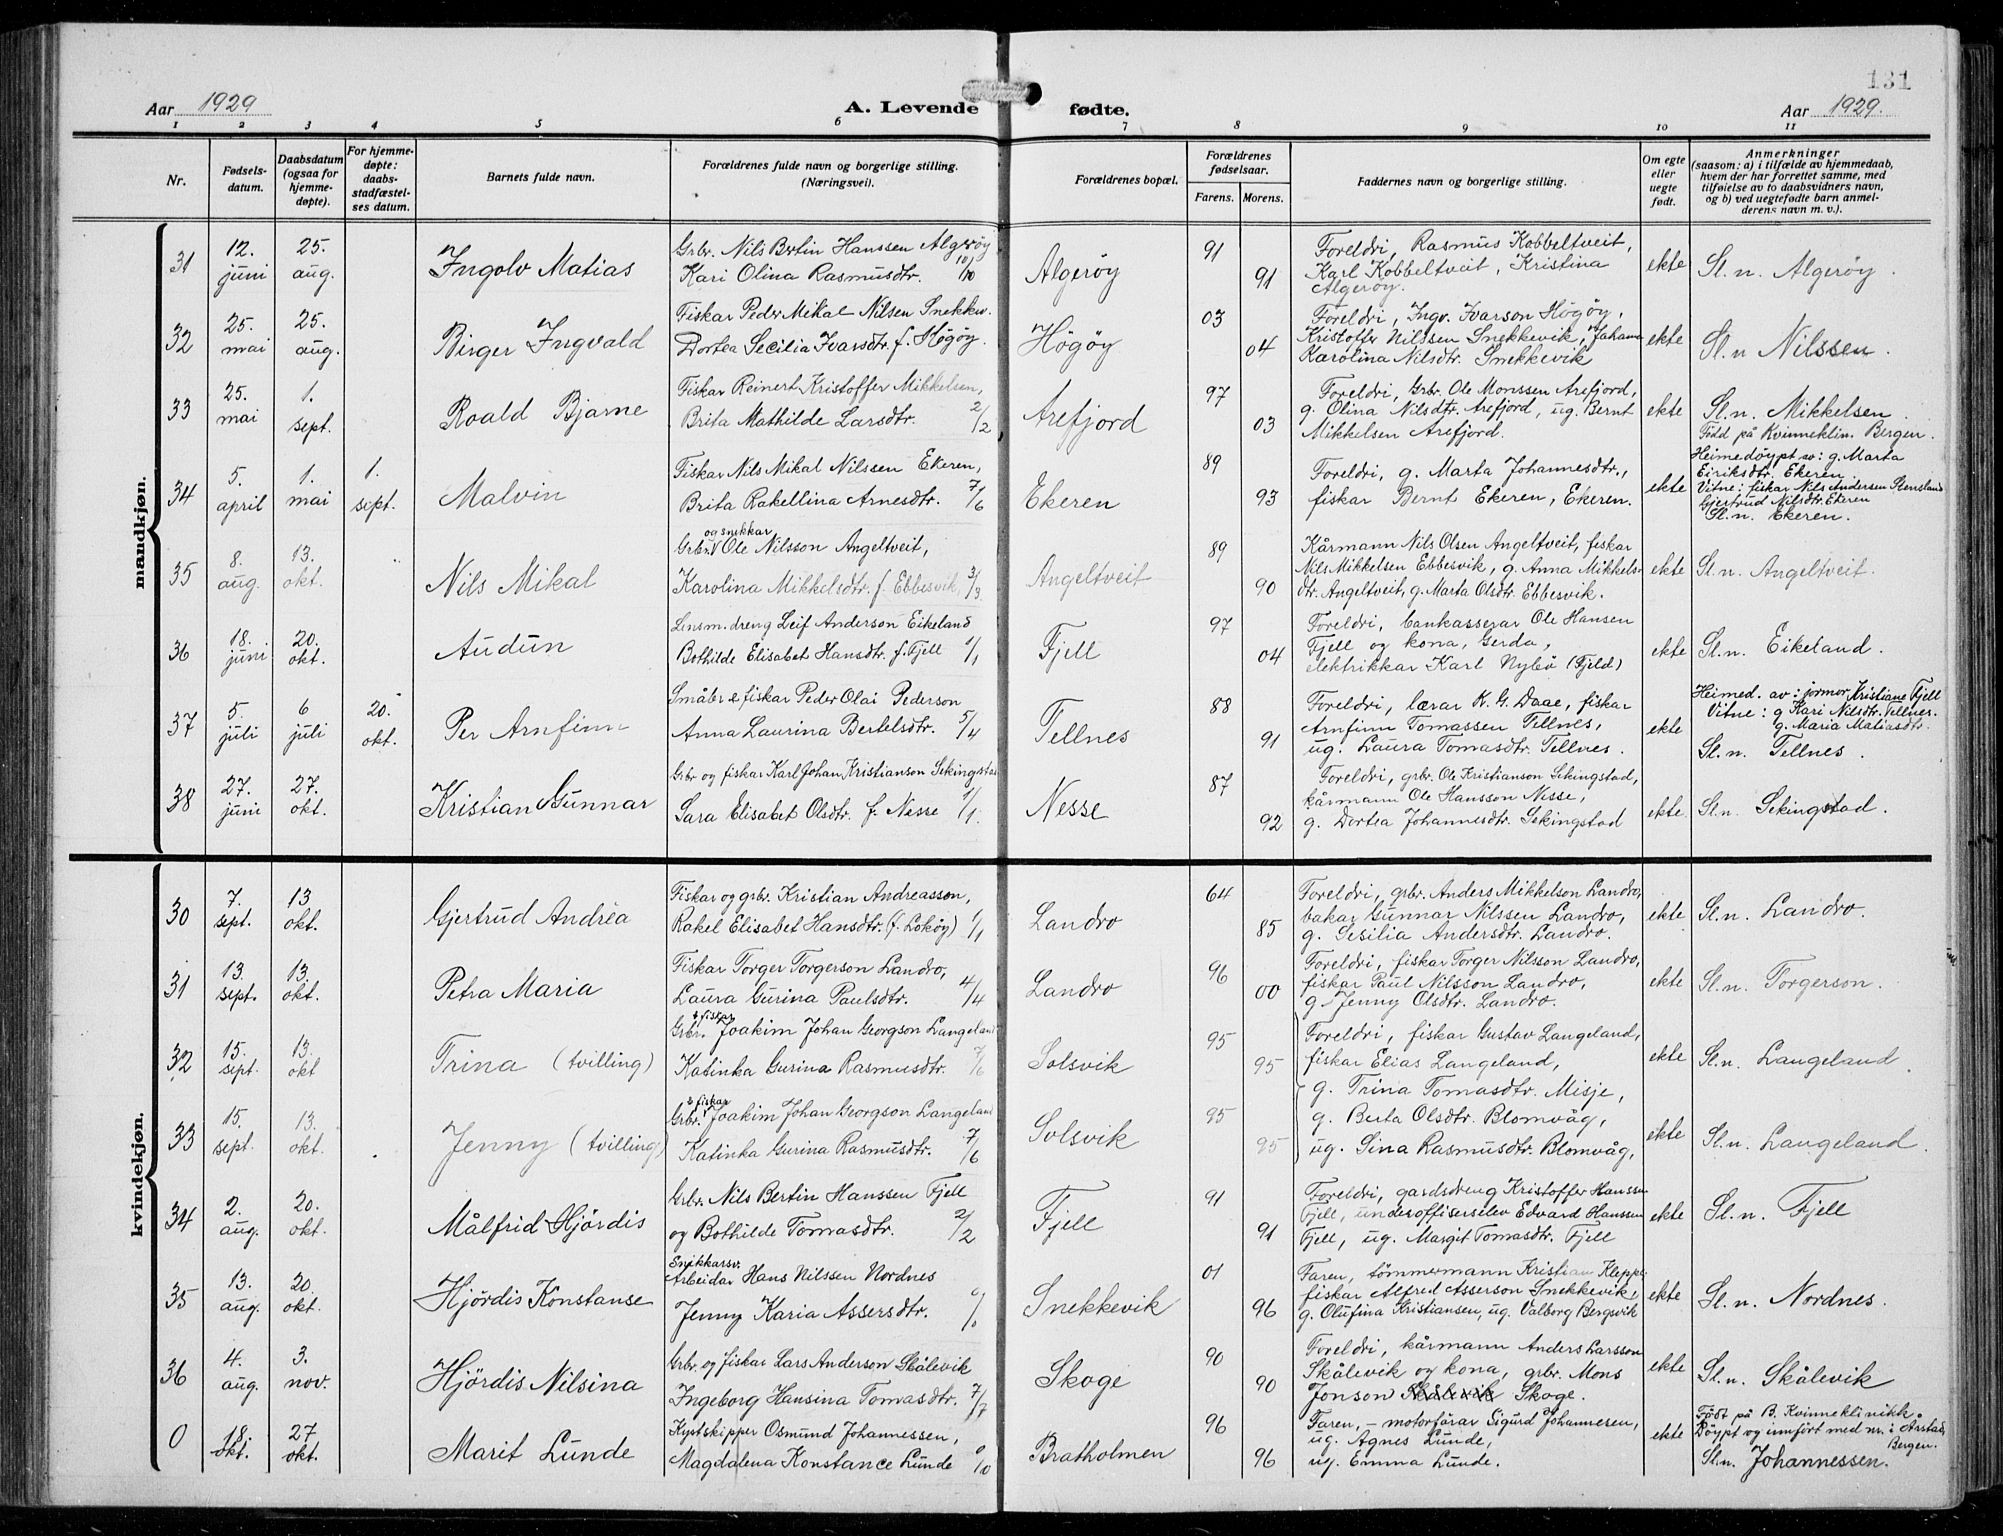 131
Aar 1929
A. Levende fødte.
Aar 1929.
1 2 3 4 5 6 7 8 9 10 11
Nr.
Fødsels-
datum.
Daabsdatum
(ogsaa for
hjemme-
døpte).
For hjemme-
døpte:
daabs-
stadfæstel-
ses datum.
Barnets fulde navn.
Forældrenes fulde navn og borgerlige stilling.
(Næringsvei).
Forældrenes bopæl.
Forældrenes
fødselsaar.
Farens. Morens.
Faddernes navn og borgerlige stilling.
Om egte
eller
uegte
født.
Anmerkninger
(saasom: a) i tilfælde av hjemmedaab,
hvem der har forrettet samme, med
tilføielse av to daabsvidners navn,
og b) ved uegtefødte barn anmel-
derens navn m. v.).
mandkjøn.
31
12.
juni
25.
aug.
Ingolv Matias
Grbr. Nils Bertin Hanssen Algerøy
Kari Olina Rasmusdtr. 10/10
Algerøy
91
91
Foreldri, Rasmus Kobbeltveit,
Karl Kobbeltveit, Kristina
Algerøy.
ekte
Sl. n. Algerøy.
32
25.
mai
25.
aug.
Birger Ingvald
Fiskar Peder Mikal Nilsen Snekkev.
Dortea Secilia Ivarsdtr. f. Högöy.
Högöy
03
04
Foreldri, Ingv. Ivarson Högöy,
Kristoffer Nilssen Snekkevik, Johanna
Karolina Nilsdtr. Snekkevik
ekte
Sl. n Nilssen.
33
25.
mai
1.
sept.
Roald Bjarne
Fiskar Reinert Kristoffer Mikkelsen,
Brita Mathilde Larsdtr. 2/2
Arefjord
97
03
Foreldri, Grbr. Ole Monssen Arefjord,
g. Olina Nilsdtr. Arefjord, ug. Bernt
Mikkelsen Arefjord.
ekte
Sl. n. Mikkelsen.
Fødd på Kvinneklin. Bergen.
34
5.
april
1.
mai
1.
sept.
Malvin
Fiskar Nils Mikal Nilssen Ekeren,
Brita Rakellina Arnesdtr. 7/6
Ekeren
89
93
Foreldri, g. Marta Johannesdtr.,
fiskar Bernt Ekeren, Ekeren.
ekte
Heimedøypt av: g. Marta
Eiriksdtr. Ekeren
Vitne: fiskar Nils Andersen
Gjertrud Nilsdtr. Ekeren
Sl. n. Ekeren.
35
8.
aug.
13.
okt.
Nils Mikal
og snikkar
Grbr. Ole Nilsson Angeltveit,
Karolina Mikkelsdtr. f. Ebbesvik, 3/3
Angeltveit
89
90
Kårmann Nils Olsen Angeltveit, fiskar
Nils Mikkelsen Ebbesvik, g. Anna Mikkels-
dtr. Angeltveit, g. Marta Olsdtr. Ebbesvik.
ekte
Sl. n. Angeltveit.
36
18.
juni
20.
okt.
Audun
Lensm. dreng Leif Anderson Eikeland
Bothilde Elisabet Hansdtr. f. Fjell 1/1
Fjell
97
04
Foreldri, bankasserar Ole Hansen
Fjell og kona, Gerda,
elektrikkar Karl Nybö (Fjeld)
ekte
Sl. n. Eikeland.
37
5.
juli
6
juli
20.
okt.
Per Arnfinn
Småbr & fiskar Peder Olai Pederson
Anna Laurina Bertelsdtr. 5/4
Tellnes
88
91
Foreldri, lærar K. G. Daae, fiskar
Arnfinn Tomassen Tellnes,
ug. Laura Tomasdtr. Tellnes.
ekte
Heimed. av: jormor Kristiane Fjell
Vitne: g Kari Nilsdtr. Tellnes.
g. Maria Matiasdtr.
Sl. n. Tellnes.
38
27.
juni
27.
okt.
Kristian Gunnar
Grbr og fiskar Karl Johan Kristianson Sekingstad
Sara Elisabet Olsdtr. f. Nesse 1/1.
Nesse
87
92
Foreldri, grbr. Ole Kristianson Sekingstad,
kårmann Ole Hansson Nesse,
g. Dortea Johannesdtr. Sekingstad
ekte.
Sl. n. Sekingstad.
kvindekjøn.
30
7.
sept.
13
okt.
Gjertrud Andrea
Fiskar og grbr. Kristian Andreasson,
Rakel Elisabet Hansdtr. (f. Lokøy) 1/1
Landro
64
85
Foreldri, grbr. Anders Mikkelson Landro,
bakar Gunnar Nilssen Landro,
g. Sesilia Andersdtr. Landro.
ekte
Sl. n. Landro.
31
13.
sept.
13.
okt.
Petra Maria
Fiskar Torger Torgerson Landro,
Laura Gurina Paulsdtr. 4/4
Landro
96
00
Foreldri, fiskar Torger Nilsson Landro,
fiskar Paul Nilsson Landro,
g. Jenny Olsdtr. Landro.
ekte
Sl. n. Torgerson.
32
15.
sept.
13.
okt
Trina (tvilling)
& fiskar
Grbr. Joakim Johan Georgson Langeland
Katinka Gurina Rasmusdtr. 7/6
Solsvik
95
95
Foreldri, fiskar Gustav Langeland,
fiskar Elias Langeland,
g. Trina Tomasdtr. Misje,
ekte
Sl. n. Langeland
33
15.
sept.
13.
okt.
Jenny (tvilling)
& fiskar
Grbr. Joakim Johan Georgson Langeland
Katinka Gurina Rasmusdtr. 7/6
Solsvik
95
95
g. Berta Olsdtr. Blomvåg,
ug. Sina Rasmusdtr. Blomvåg,
ekte
Sl. n. Langeland.
34
2.
aug.
20.
okt.
Målfrid Hjördis
Grbr. Nils Bertin Hanssen Fjell
og Bothilde Tomasdtr. 2/2
Fjell
91
91
Foreldri, gardsdreng Kristoffer Hanssen
Fjell, underoffiserselev Edvard Hanssen
Fjell, ug. Margit Tomasdtr. Fjell
ekte
Sl. n. Fjell
35
13.
aug.
20.
okt.
Hjördis Konstanse
Snikkarsv.
Arbeidar Hans Nilssen Nordnes
Jenny Karia Assersdtr. 0/0
Snekkevik
01
96
Faren, tömmermann Kristian Kleppe
fiskar Alfred Asserson Snekkevik,
g. Olufina Kristiansen, ug. Valborg Bergsvik
ekte
Sl. n. Nordnes.
36
4.
aug.
3.
nov.
Hjördis Nilsina
Grbr. og fiskar Lars Anderson Skålevik
Ingeborg Hansina Tomasdtr. 7/7
Skoge
90
90
Foreldri, kårmann Anders Larsson
Skålevik og kona, grbr. Mons
Jonson Skålevik Skoge.
ekte
Sl. n. Skålevik
0
18.
okt.
27
okt.
Marit Lunde
Kystskipper Osmund Johannessen,
Magdalena Konstance Lunde 0/0
Bratholmen
96
96
Faren, – motorförar Sigurd Johannesen,
ug. Agnes Lunde,
ug. Emma Lunde.
ekte
Födt på B. Kvinneklinikk.
Döypt og innfört med nr. i Årstad,
Bergen.
Sl. n. Johannessen.